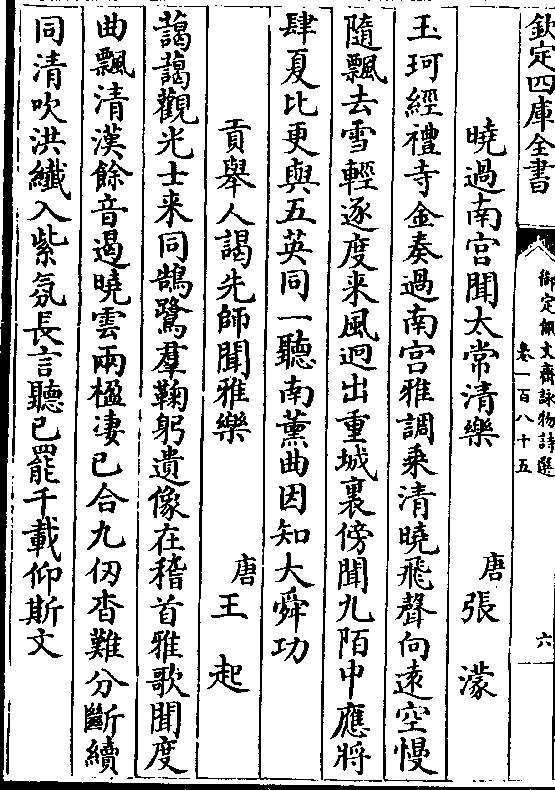 欽定四庫全書
御定佩文齋詠物詩選
卷一百八十五
六
曉過南宮聞太常清樂
唐張濛
玉珂經禮寺金奏過南宮雅調乗清曉飛聲向逺空慢
隨飄去雪輕逐度来風迥出重城裏傍聞九陌中應將
肆夏比更與五英同一聽南薫曲因知大舜功
貢舉人謁先師聞雅樂
唐王起
藹藹觀光士来同鵠鷺羣鞠躬遺像在稽首雅歌聞度
曲飄清漢餘音遏曉雲兩楹凄已合九仭杳難分斷續
同清吹洪纖入紫氛長言聽已罷千載仰斯文